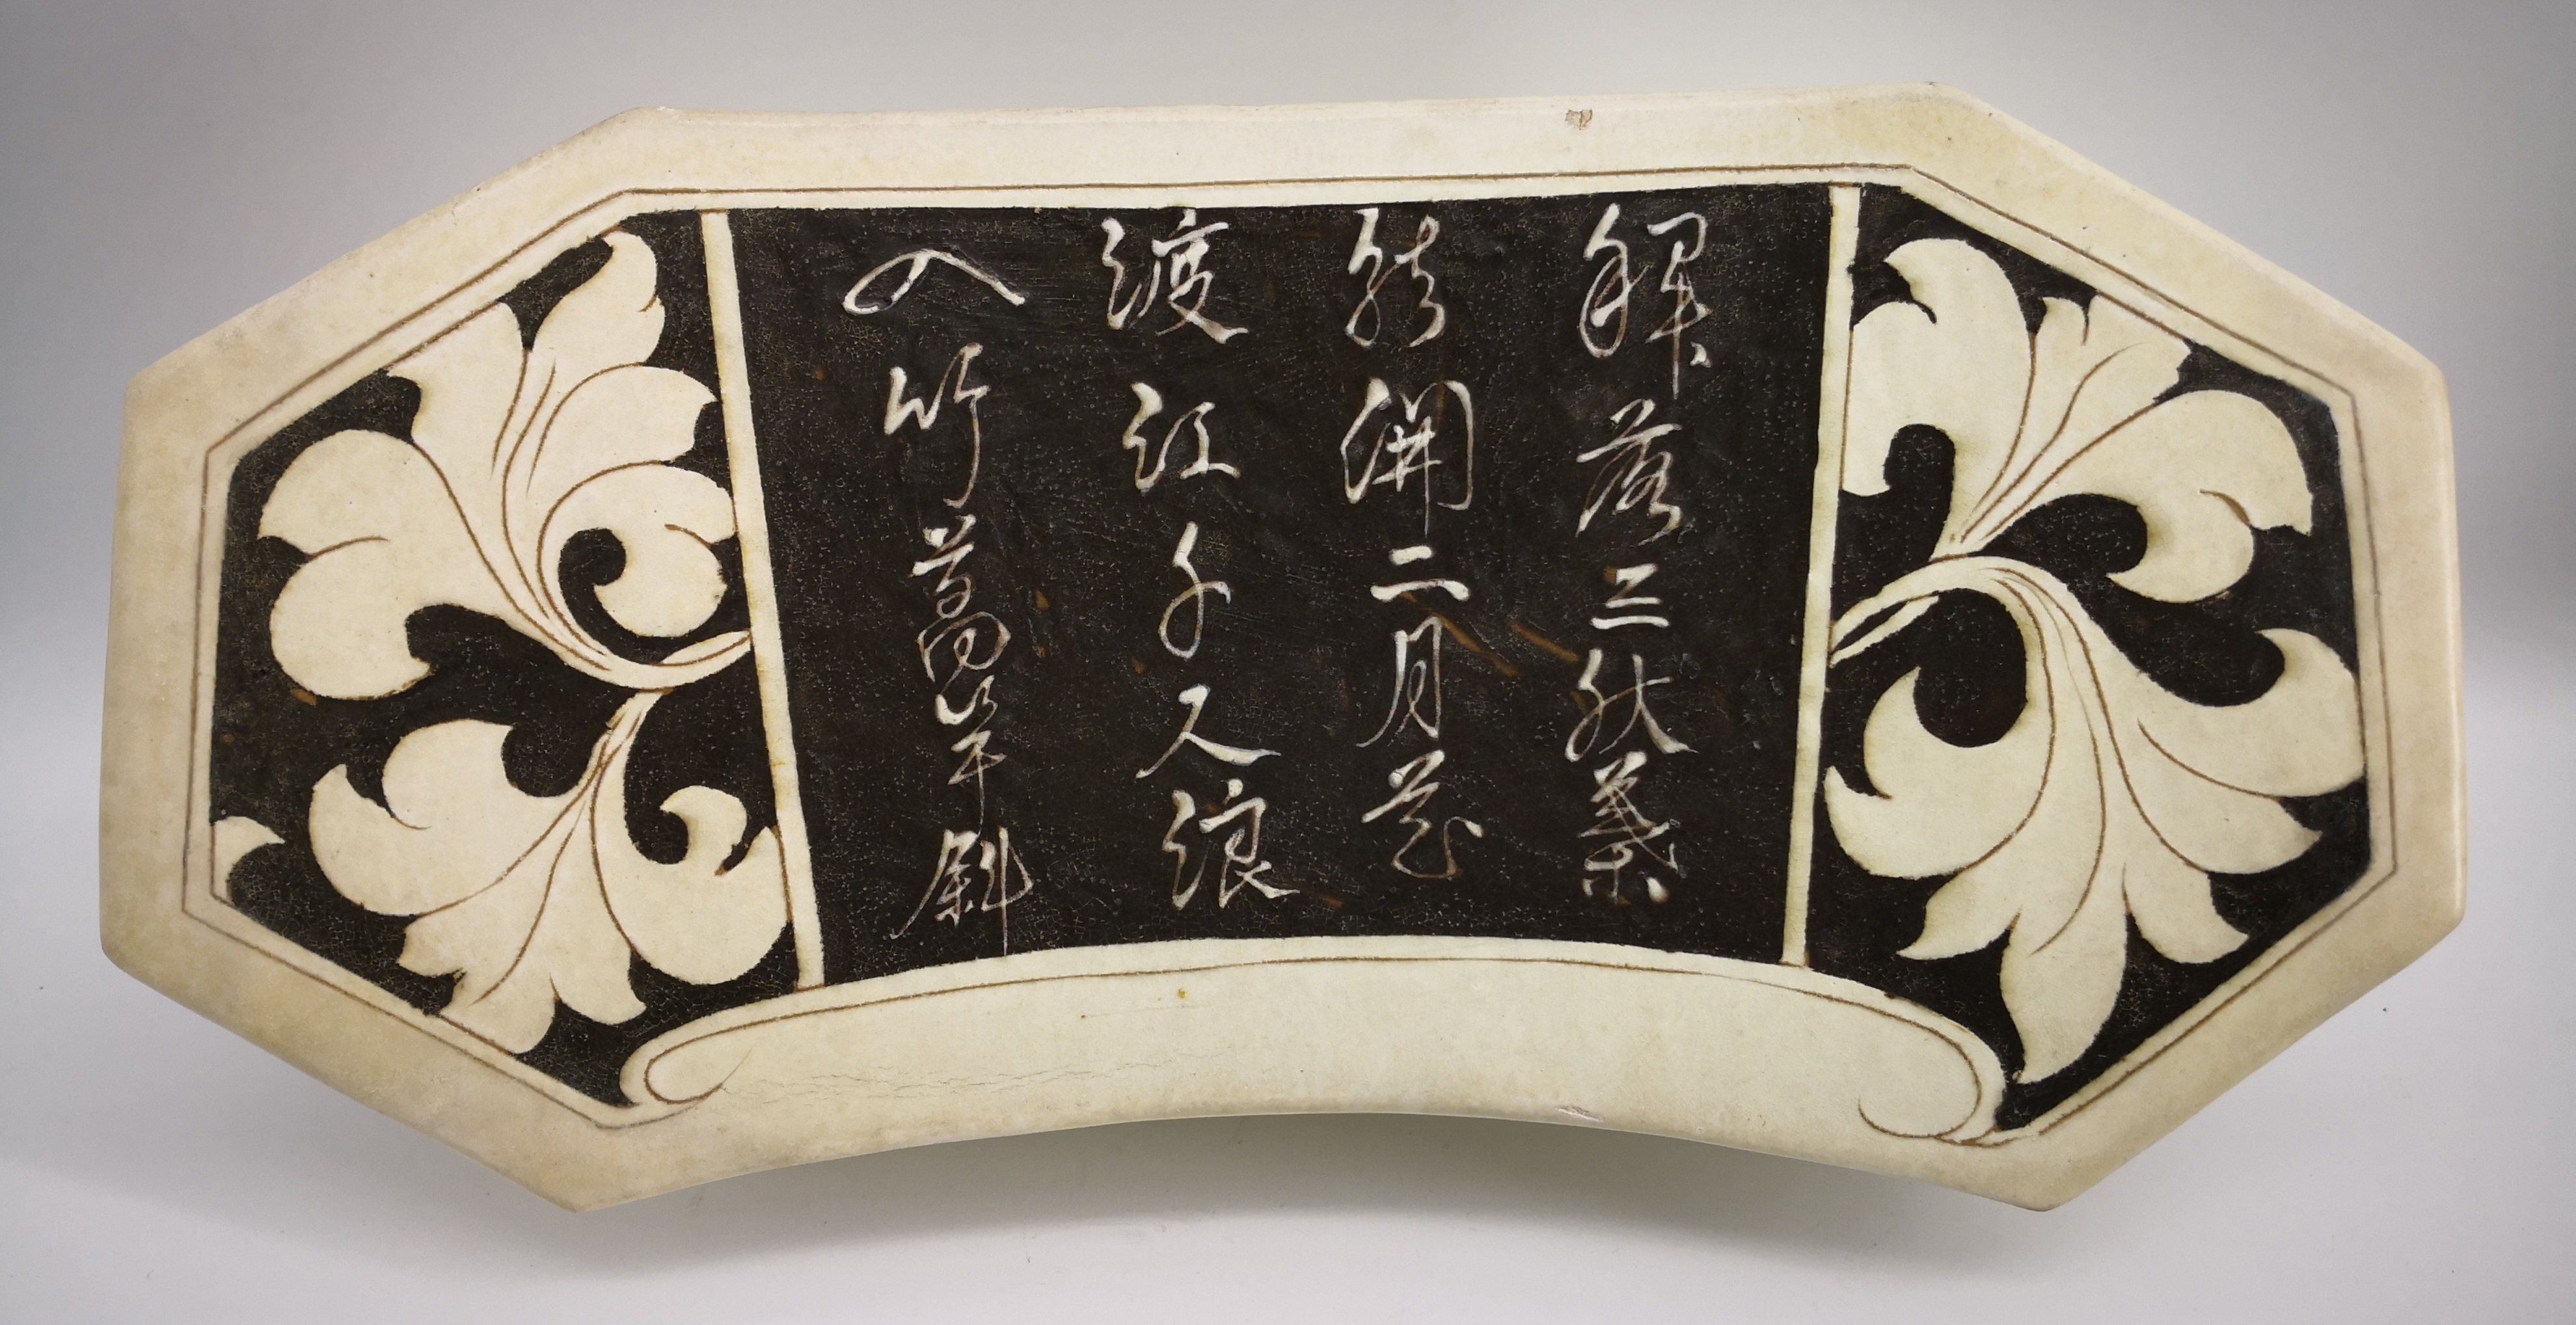 解落三秋葉
能開二月花
渡江千尺浪
入竹萬竿斜